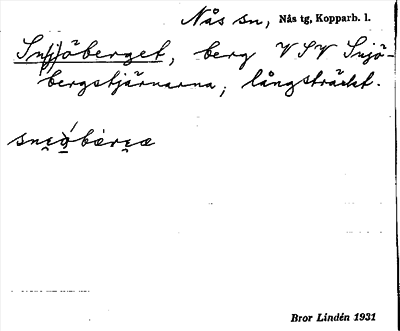 Nås sn, Nås tg, Kopparb. l.
Sn(j)öberget, berg VSV Snjö-
bergstjärnarna; långsträckt.
Bror Lindén 1931